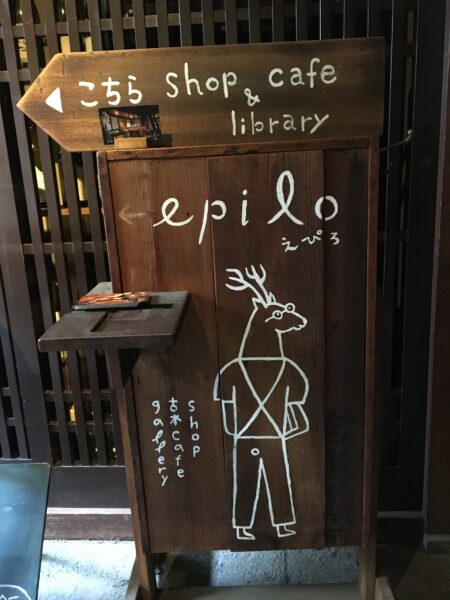 こちら shop cafe
& library
epilo
えぴろ
shop
古本cafe
gallery